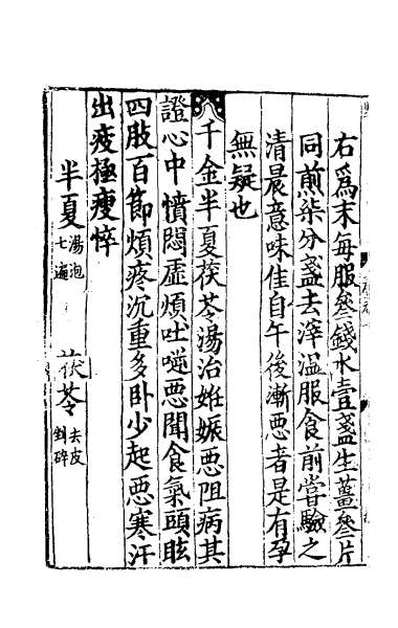 右爲末每服叄錢水壹盞生薑叄片
同煎柒分盞去滓溫服食前嘗驗之
清晨意味佳自午後漸惡者是有孕
無疑也
千金半夏茯苓湯治姙娠惡阻病其
證心中憒悶虛煩吐噦惡聞食氣頭眩
四肢百節煩疼沉重多卧少起惡寒汗
出疲極瘦悴
半夏湯泡七遍 茯苓去皮剉碎